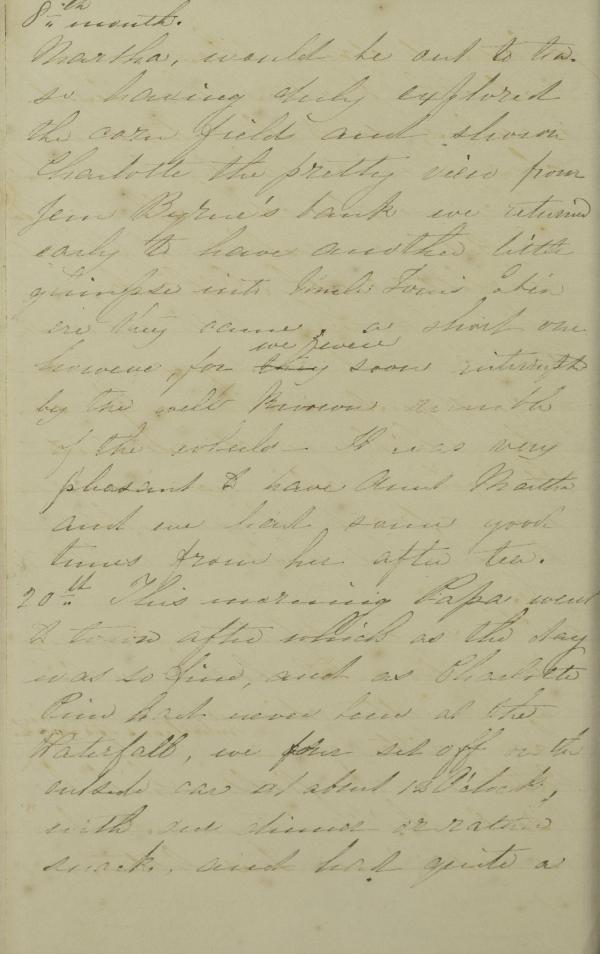 8th month.
Martha, would be out to tea.
so having duly explored
the corn fields and shown
Charlotte the pretty view from
Jem Byrne's bank we returned
early to have another little
glimpse into Uncle Tom's Cabin
ere they came, a short one
however, for they we were soon interrupted
by the well known rumble
of the wheels – It was very
pleasant to have Aunt Martha
and we had some good
times from her after tea.
20th This morning Papa went
to town after which as the day
was so fine, and as Charlotte
Pim had never been at the
Waterfall, we four set off on the
outside car at about 12 O'clock,
with our dinner or rather
snack, and had quite a